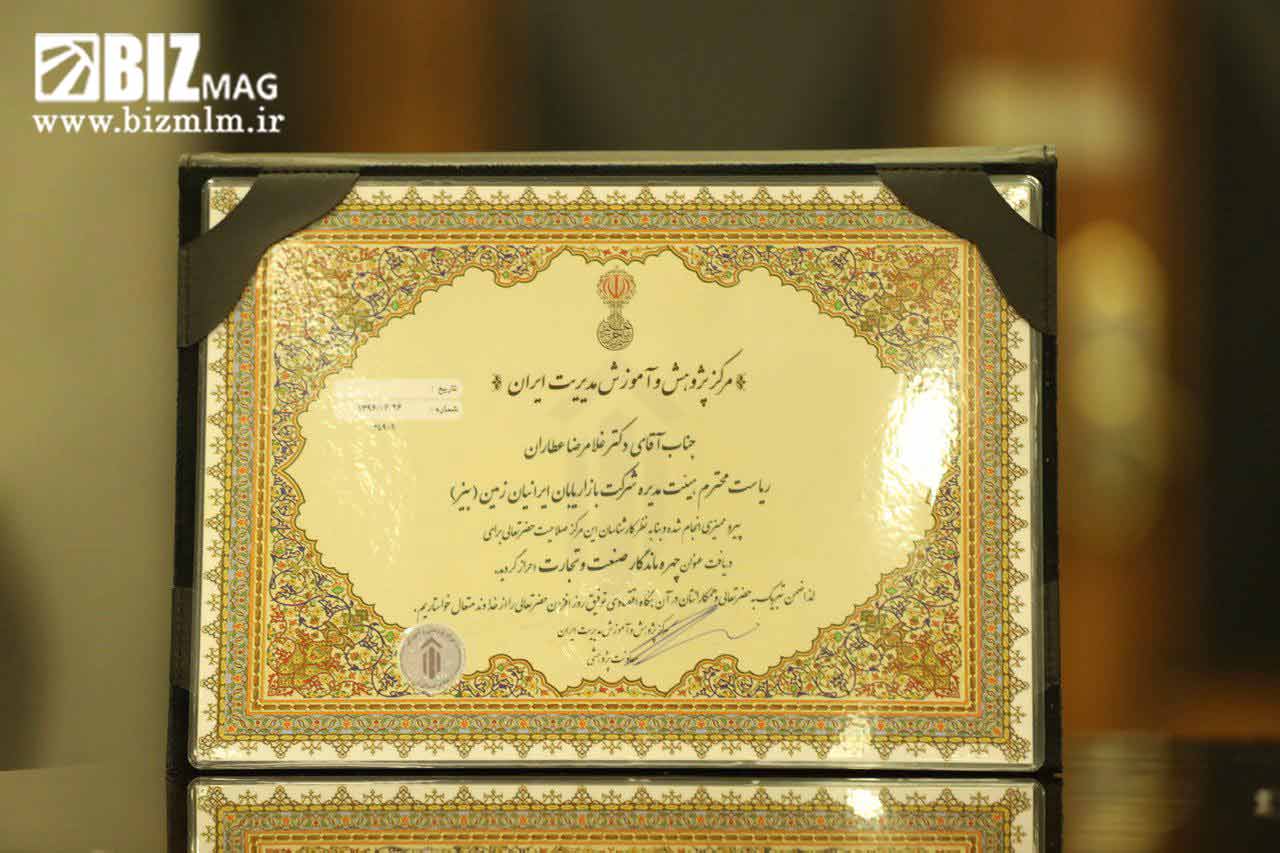 BIZ MAG
www.bizmlm.ir
مرکز پژوهش و آموزش مدیریت ایران
تاریخ :
شماره : ۱۳۹۶/۱۲/۲۶
جناب آقای دکتر غلامرضا عطاران
ریاست محترم هیئت مدیره شرکت بازاریابان ایرانیان زمین (بیز)
پیرو ممیزی انجام شده و بنا به نظر کارشناسان این مرکز صلاحیت حضرتعالی برای
دریافت عنوان چهره ماندگار صنعت و تجارت احراز گردید.
لذا ضمن تبریک به حضرتعالی و همکارانتان در آن بنگاه اقتصادی توفیق روز افزون حضرتعالی را از خداوند متعال خواستاریم.
مرکز پژوهش و آموزش مدیریت ایران
معاونت پژوهشی